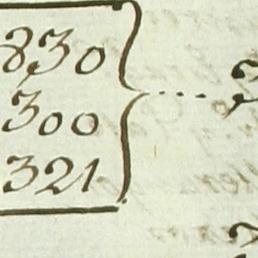 830
300
321